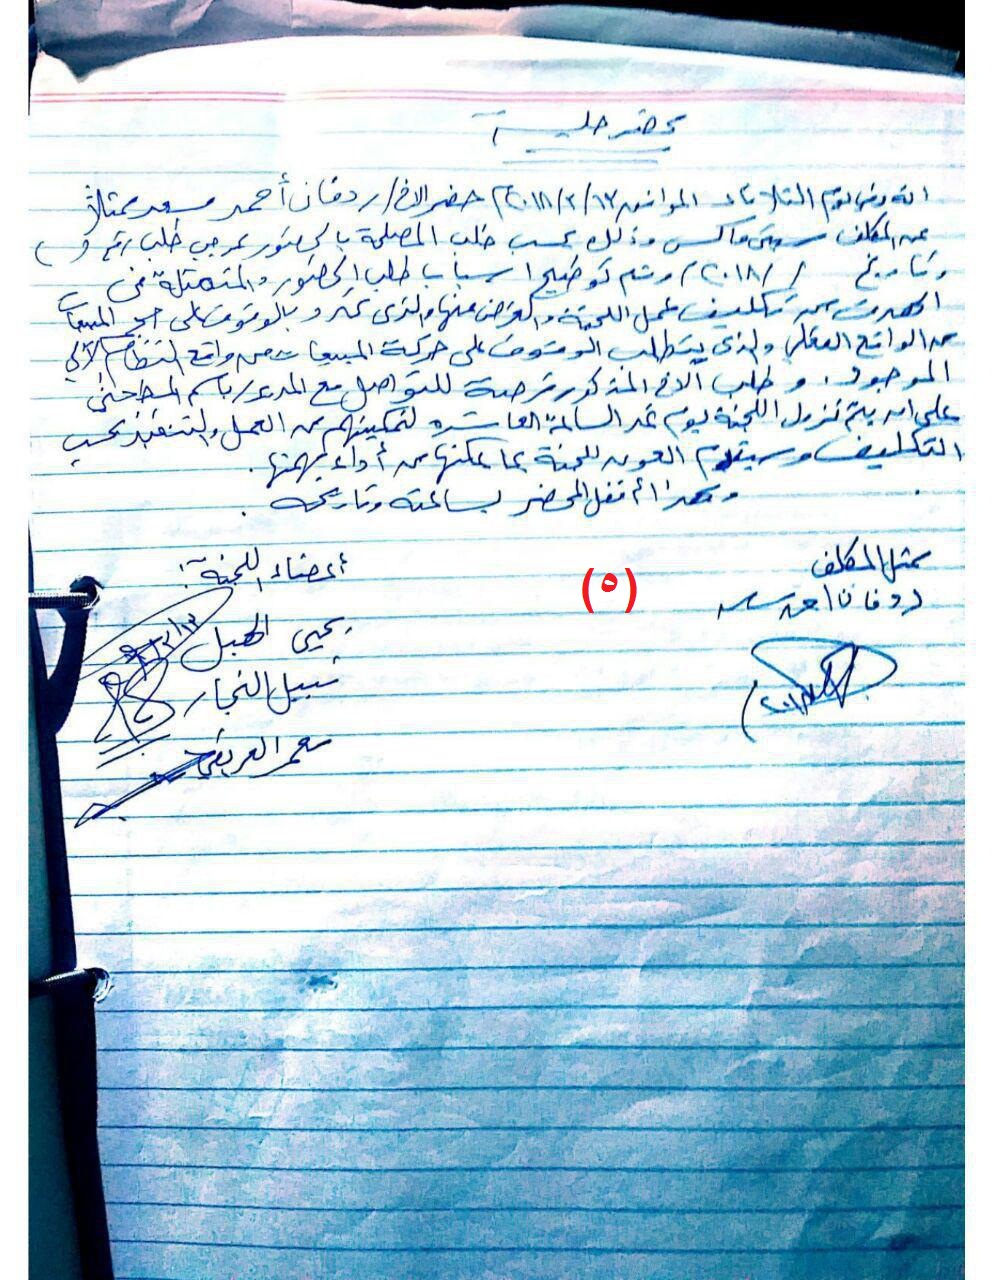 محضر جلسة
انه في يوم الثلاثاء الموافق ١٣/٣/٢٠١٨م حضر الاخ/ ردفان أحمد مسعد ممثلاً
عن المكلف سيتي ماكس وذلك بحسب طلب المصلحة بالحضور بموجب طلب رقم ( )
وتاريخ / /٢٠١٨م وتم توضيح اسباب طلب الحضور والمتمثلة في
الهدف من تكليف عمل اللجنة والغرض منها والذي بالوقوف على حجم المبيعات
من الواقع الفعلي والذي يتطلب الوقوف على حركة المبيعات من واقع النظام الآلي
الموجود. وطلب الاخ المذكور فرصة للتواصل مع المدعو/ باسم
على ان يتم نزول اللجنة يوم غد الساعة العاشرة لتمكينهم من العمل والتنفيذ بحسب
التكليف وسيقدم العون للجنة بما يمكنها من أداء مهمتها.
وبهذا أقفل المحضر بساعته وتاريخه.
ممثل المكلف
ردفان احمد مسعد
أعضاء اللجنة:
يحيى الهبل
نبيل النجار
معمر العريقي
(٥)